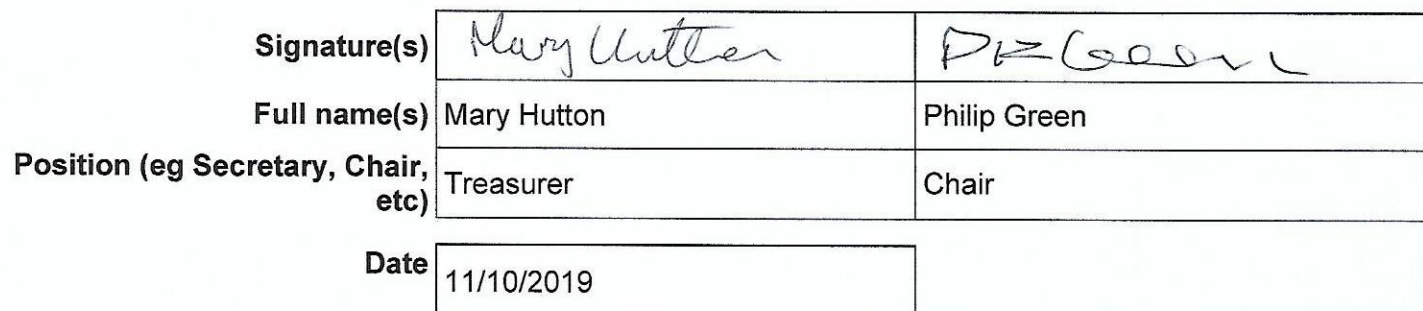 Signature(s) Mary Hutton PR Green
Full name(s) Mary Hutton Philip Green
Position (eg Secretary, Chair,
etc) Treasurer Chair
Date 11/10/2019